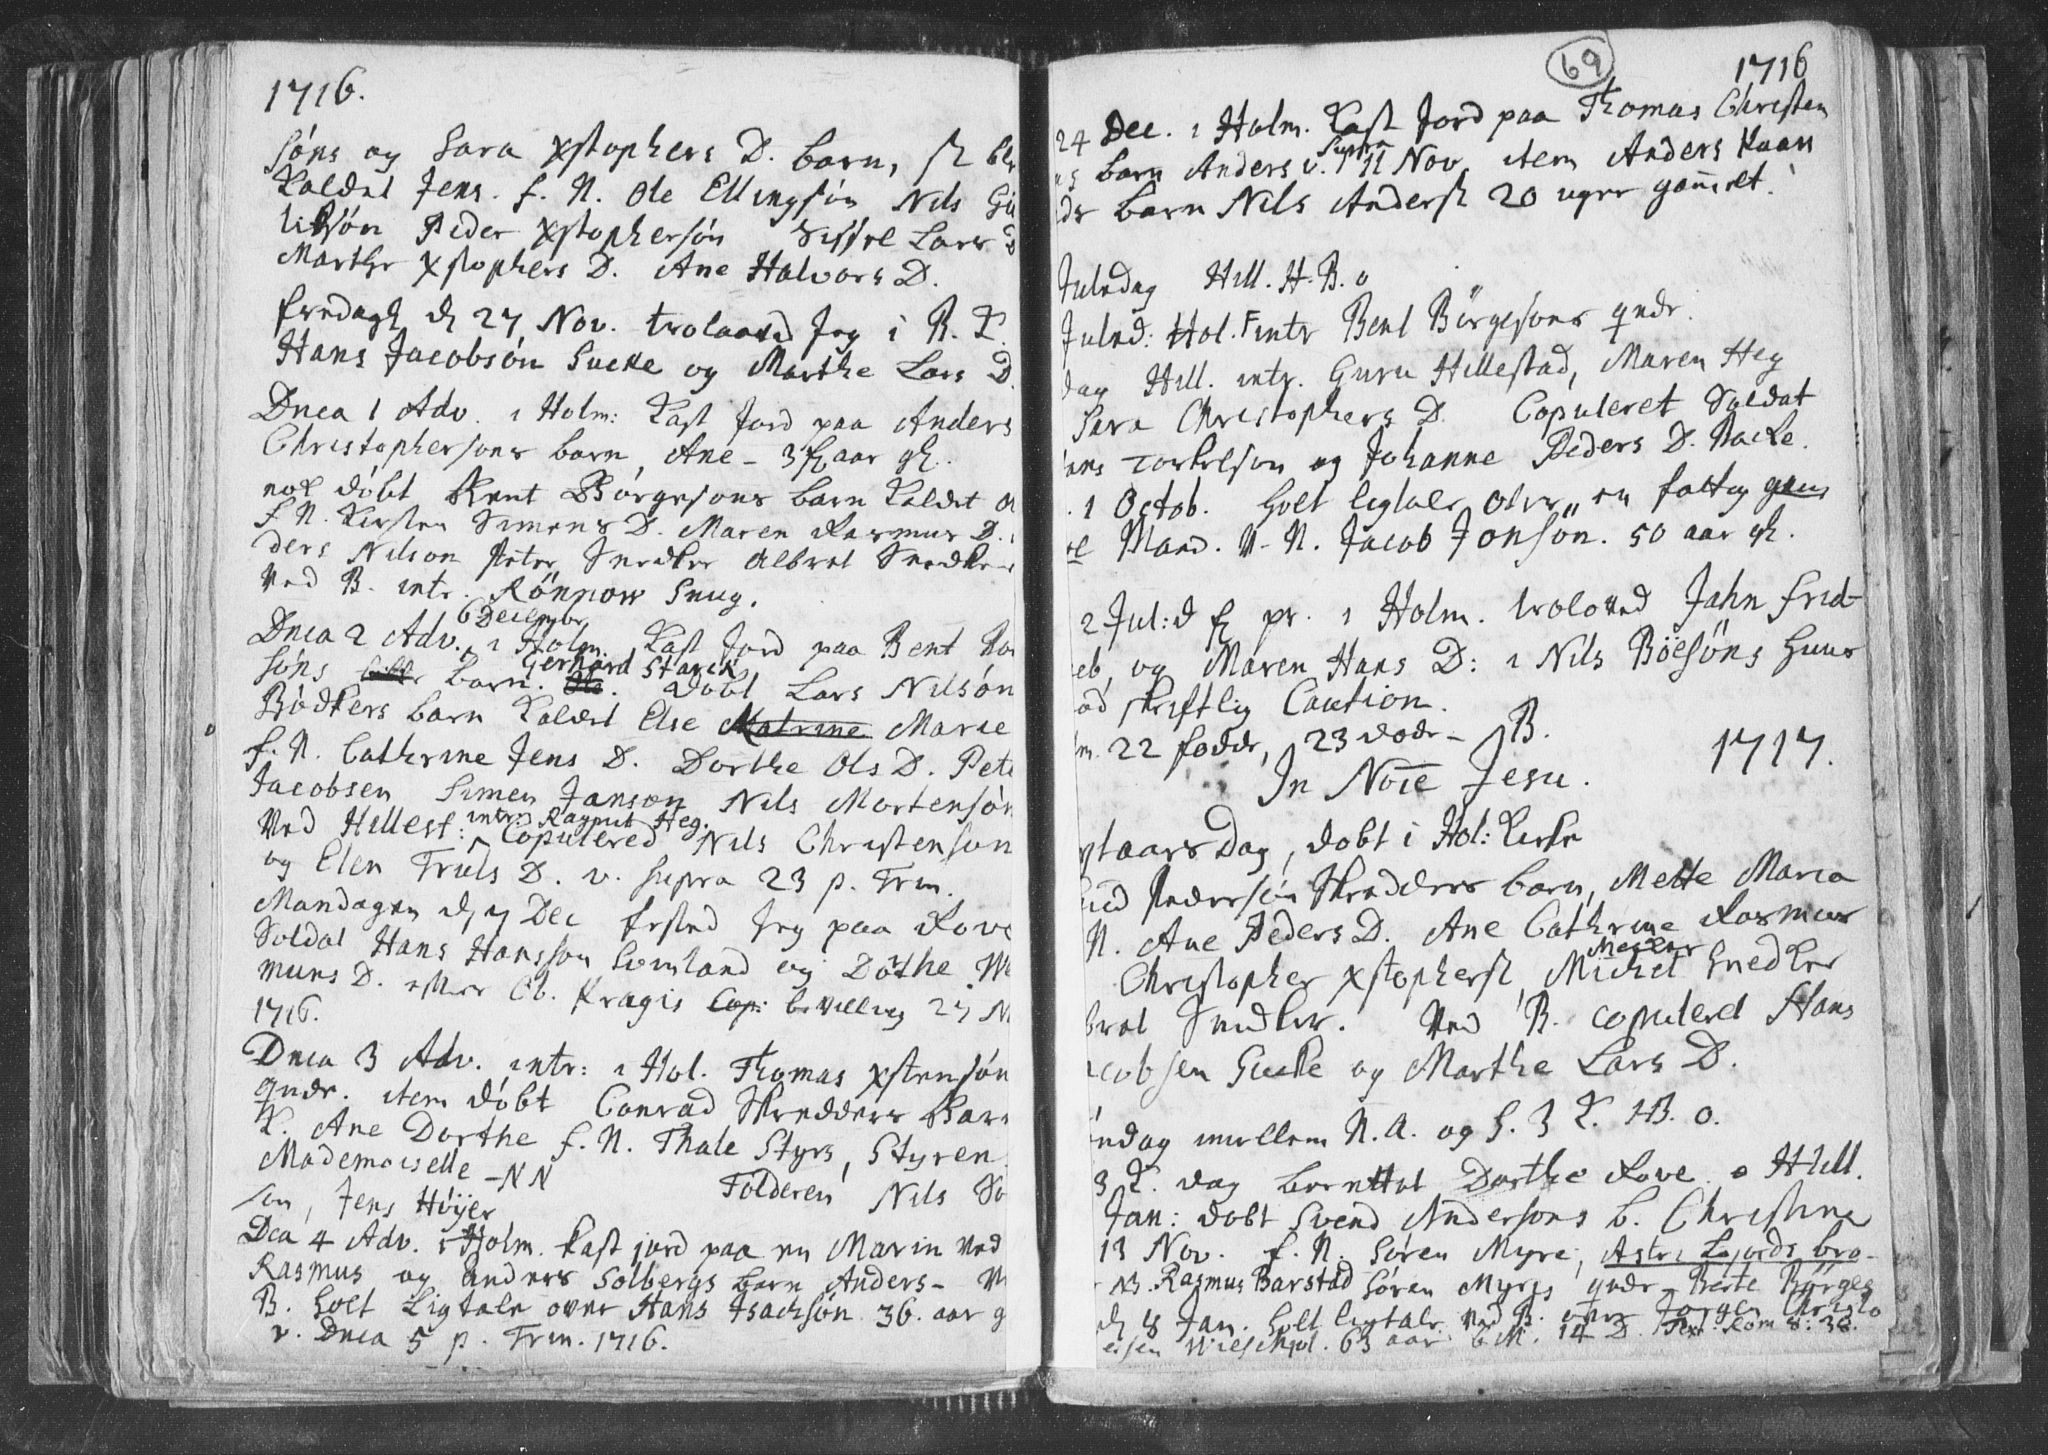 1716.
söns og Sara xstophers D. barn,
Kaldet Jens. f. N. Ole Ellingsön Nils
Peder xstophersön Sissel Lars D
Marthe xstophers D. Ane Halvors D.
fredagen d 27 Nov. troloved Jeg i B. K.
Hans Jacobsön Sucke og Marthe Lars D.
Dnca 1 Adv. i Holm: Kast Jord paa Anders
Christophersöns barn, Ane - 3 aar gl.
nok döbt Bent Börgesöns barn Kaldet
f. N. Kirsten Simens D. Maren Rasmus D.
ders Nilson Peter Snedker Albret Snedker
Ved B. intr. Rönnow Snug.
6 Decembr
Dnca 2 Adv. i Holm. Kast Jord paa Bent
Gerhard Starck
söns barn. döbt Lars Nilsön
Bödkers barn Kaldet Else Matrine Marie
f. N. Cathrine Jens D. Dorthe Ols D. Pete
Jacobsen Simen Janson Nils Mortensön
intr: Ragnil Heg.
Ved Hillest: Copulered Nils Christenson
og Elen Truls D. v. supra 23 p. Trin.
Mandagen d 7 Dec fested Jeg paa Rove
Soldat Hans Hansson Somland og Dörthe
muns D. efter Ob. Kragis Cop: bevilling 27 N
1716.
Dnca 3 Adv. intr: i Hol. Thomas xstensön
qvdr. item döbt Conrad Skredders Barn
K. Ane Dorthe f. N. Thale Styrs, Styren
Mademoiselle - NN Tolderen Nils
sen, Jens Höijer
Dca 4 Adv. i Holm. Kast jord paa en Marin ved
Rasmus og Anders Solbergs barn Anders -
B. holt Ligtale over Hans Isachsön 36. aar g
v. Dnca 5 p. Trin. 1716.
69
1716
24 Dec. i Holm. Kast Jord paa Thomas Christen
supra
ns barn Anders v. 11 Nov. item Anders Kaas
barn Nils Anders 20 uger gammelt.
Juledag Hill. H. B. o
Juled: Hol. intr Bent Börgesöns qvdr.
dag Hill. intr. Guru Hillestad, Maren Heg
Sara Christophers D. Copuleret Soldat
Torkelson og Johanne Peders D. Backe.
1 Octob. holt ligtale over en fattig
Mand. V. N. Jacob Jonsön. 50 aar gl.
2 Jul: d pr. i Holm. troloved Jahn Frid-
eb, og Maren Hans D: i Nils Böesöns huus
skriftlig Caution.
22 födde, 23 döde - B.
1717.
In Noïe Jesu.
ytaars Dag, döbt i Hol: Kirke
Pedersön Skredders barn, Mette Maria
N. Ane Peders D. Ane Cathrine Rasmus
Christopher xstophers, Michel Snedker
bret Snedker. Ved B. copuleret Hans
acobsen Sucke og Marthe Lars D.
öndag imellem N. A. og H. 3 K. H B. o.
3 K. dag berettet Dorthe Rove. o Hill.
Jan: döbt Svend Andersöns b. Christine
13 Nov. f. N. Sören Myre, Astri Lofords bro-
Rasmus Barstad Sören Myrs qvdr Berte Börges
d 8 Jan. holt ligtale ved B. over Jörgen Christo
63 aar 6 M. 14 D. Text. Rom 8: 38.